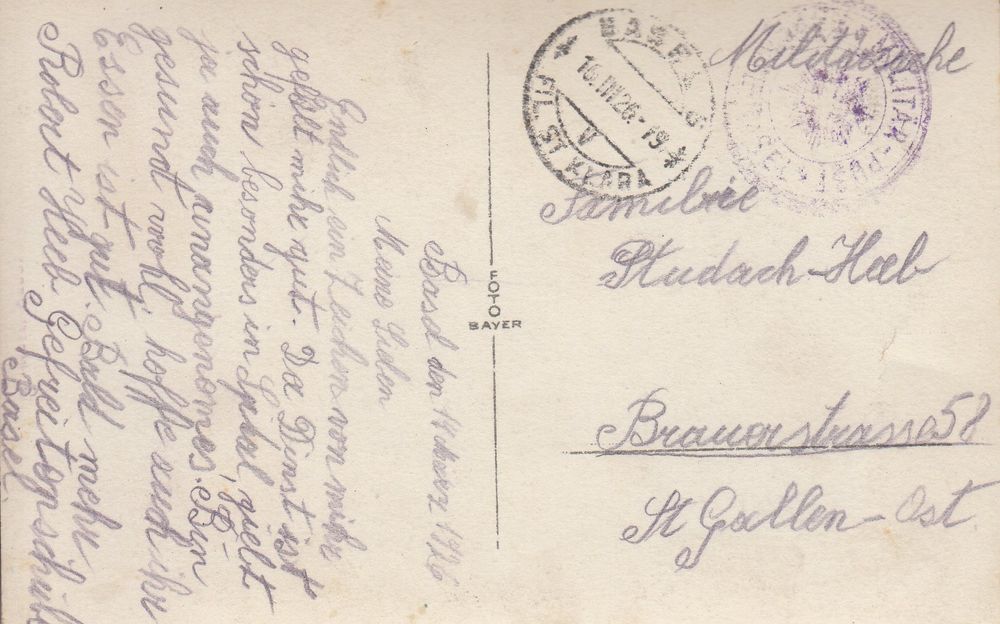 Basel den 14 Meerz 1926
Meine Lieben
Endlich ein Zeichen von mihr
gefält mihr gut. Da Dinst ist
schon besonders in Spital gielt
ja auch
gesund wohl, hoffe auch ihr
Essen ist gut. Bald mehr
Robert Heeb Gefreitop
Basel
FOTO
BAYER
BASEL
16.III.26.-19
V
FIL. ST. KLARA
MILITÄR-
Militärsache
Familie
Studach-Heeb
Brauerstrasse 58
St Gallen-Ost.